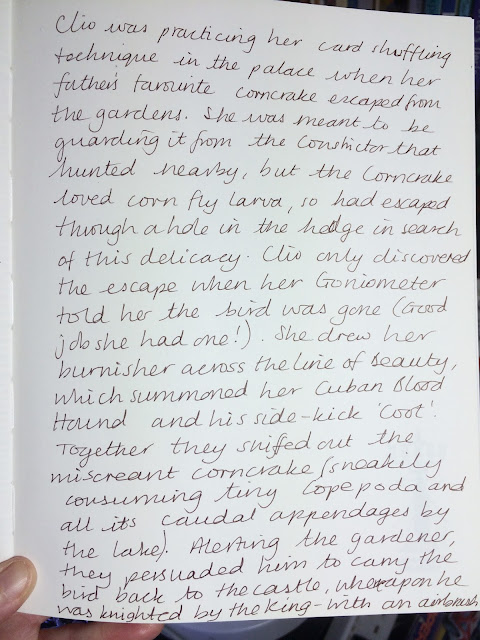 Clio was practicing her card shuffling
technique in the palace when her
father's favourite corncrake escaped from
the gardens. She was meant to be
guarding it from the Constrictor that
hunted nearby, but the Corncrake
loved corn fly larva, so had escaped
through a hole in the hedge in search
of this delicacy. Clio only discovered
the escape when her Goniometer
told her the bird was gone (Good
job she had one!). She drew her
burnisher across the line of Beauty,
which summoned her Cuban Blood
Hound and his side-kick 'Coot'.
Together they sniffed out the
miscreant corncrake (sneakily
consuming tiny Copepoda and
all it's caudal appendages by
the lake). Alerting the gardener,
they persuaded him to carry the
bird back to the castle, whereapon he
was knighted by the King - with an airbrush